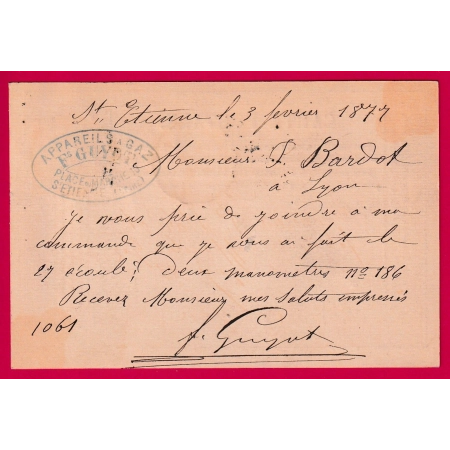 St Etienne le 3 fevrier 1877
APPAREILS A GAZ
Fs GUYOT
PLACE
Monsieur P. Bardot
à Lyon
Je vous prie de joindre à ma
commande que je vous ai fait le
27 écoulé, deux manomètres no 186
Recevez Monsieur mes saluts empressés
1061
f. Guyot